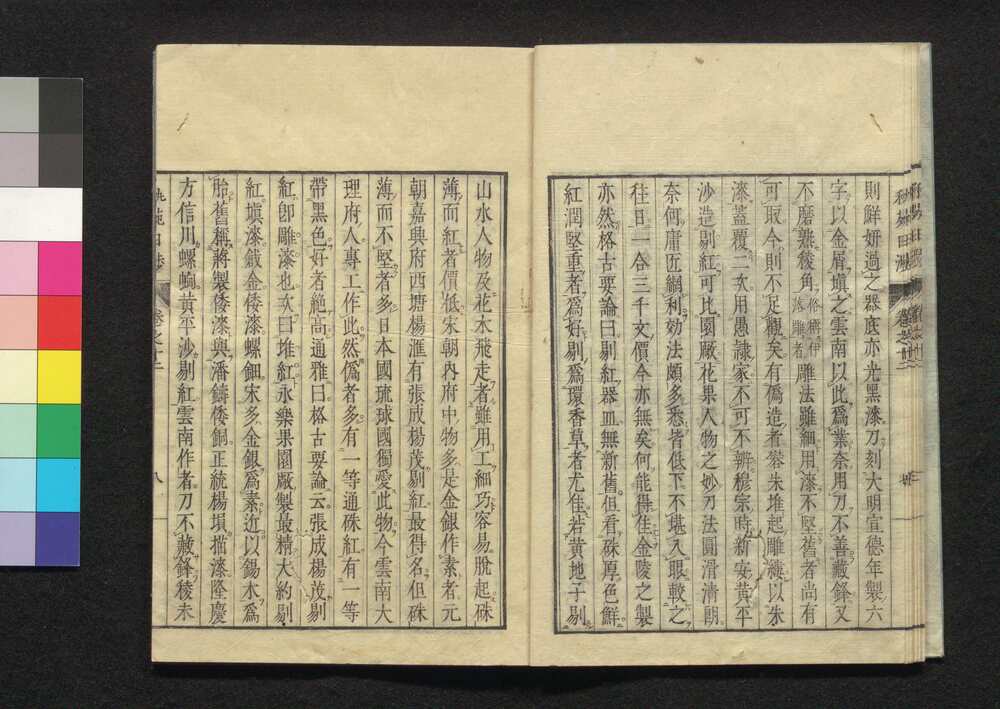 則鮮妍過之器底亦光黑漆刀刻大明宣德年製六
字以金屑塡之雲南以此爲業奈用刀不善藏鋒又
不磨熟稜角雕法雖細用漆不堅舊者尚有
可取今則不足觀矣有僞造者礬朱堆起雕鏤以朱
漆蓋覆二次用愚隸家不可不辨穆宗時新安黄平
沙造剔紅可比園厰花果人物之妙刀法圓滑清朗
奈何庸匠網利効法頗多悉皆低下不堪入眼較之
徃日一合三千文價今亦無矣何能得佳金陵之製
亦然格古要論曰剔紅器皿無新舊但看硃厚色鮮
紅潤堅重者爲好剔爲環香草者尤佳若黄地子剔
山水人物及花木飛走者雖用工細巧容易脫起硃
薄而紅者價低宋朝内府中物多是金銀作素者元
朝嘉興府西塘楊滙有張成楊茂剔紅最得名但硃
薄而不堅者多日本國琉球國獨愛此物今雲南大
理府人專工作此然僞者多有一等通硃紅有一等
帶黑色好者絶尚通雅曰格古要論云張成楊茂剔
紅即雕漆也次曰堆紅永樂果園厰製最精大約剔
紅塡漆戧金倭漆螺鈿宋多金銀爲素近以錫木爲
胎舊稱蔣製倭漆與潘鑄倭銅正統楊塤描漆隆慶
方信川螺蜔黄平沙剔紅雲南作者刀不藏鋒稜未